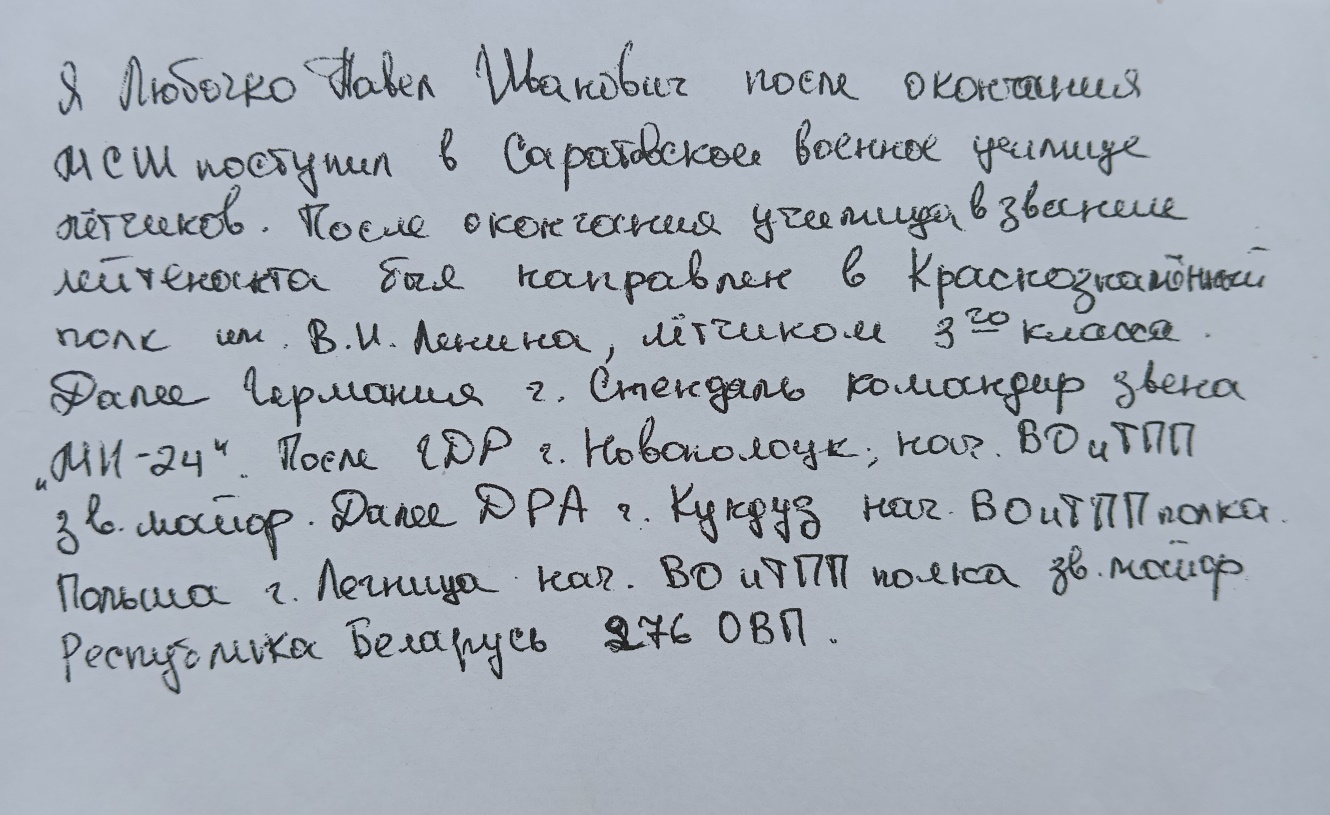 Я Любочко Павел Иванович после окончания
МСШ поступил в Саратовское военное училище
лётчиков. После окончания училища, в звание
лейтенанта был направлен в Краснознамённый
полк им. В.И. Ленина, лётчиком 3го класса.
Далее Германия г. Стендаль командир звена
„МИ-24". После ГДР г. Новополоцк, нач. ВО и ТПП
зв. майор. Далее ДРА г. Кундуз нач. ВО и ТПП полка.
Польша г. Легница нач. ВО и ТПП полка зв. майор
Республика Беларусь 276 ОВП.